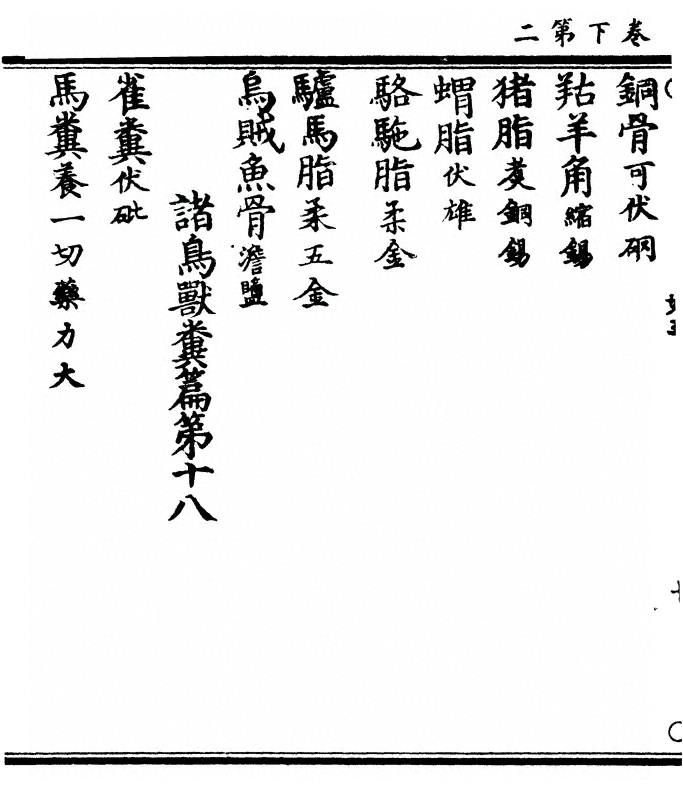 卷下第二
鋼骨可伏硇
羖羊角縮錫
猪脂煑銅錫
蝟脂伏雄
駱駞脂柔金
驢馬脂柔五金
烏賊魚骨澹鹽
諸鳥獸糞篇第十八
雀糞伏砒
馬糞養一切藥力大